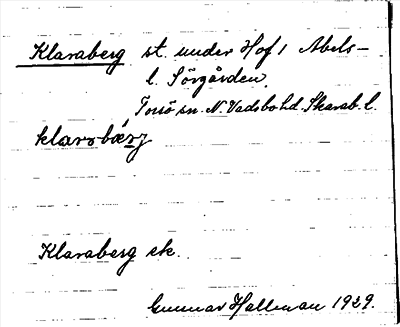 Klaraberg st. under Hof 1 Abels-
l. Sörgården,
Torsö sn. N. Vadsbo hd. Skarab. l.
klarabærj
Klaraberg ek.
Gunnar Hallman 1929.